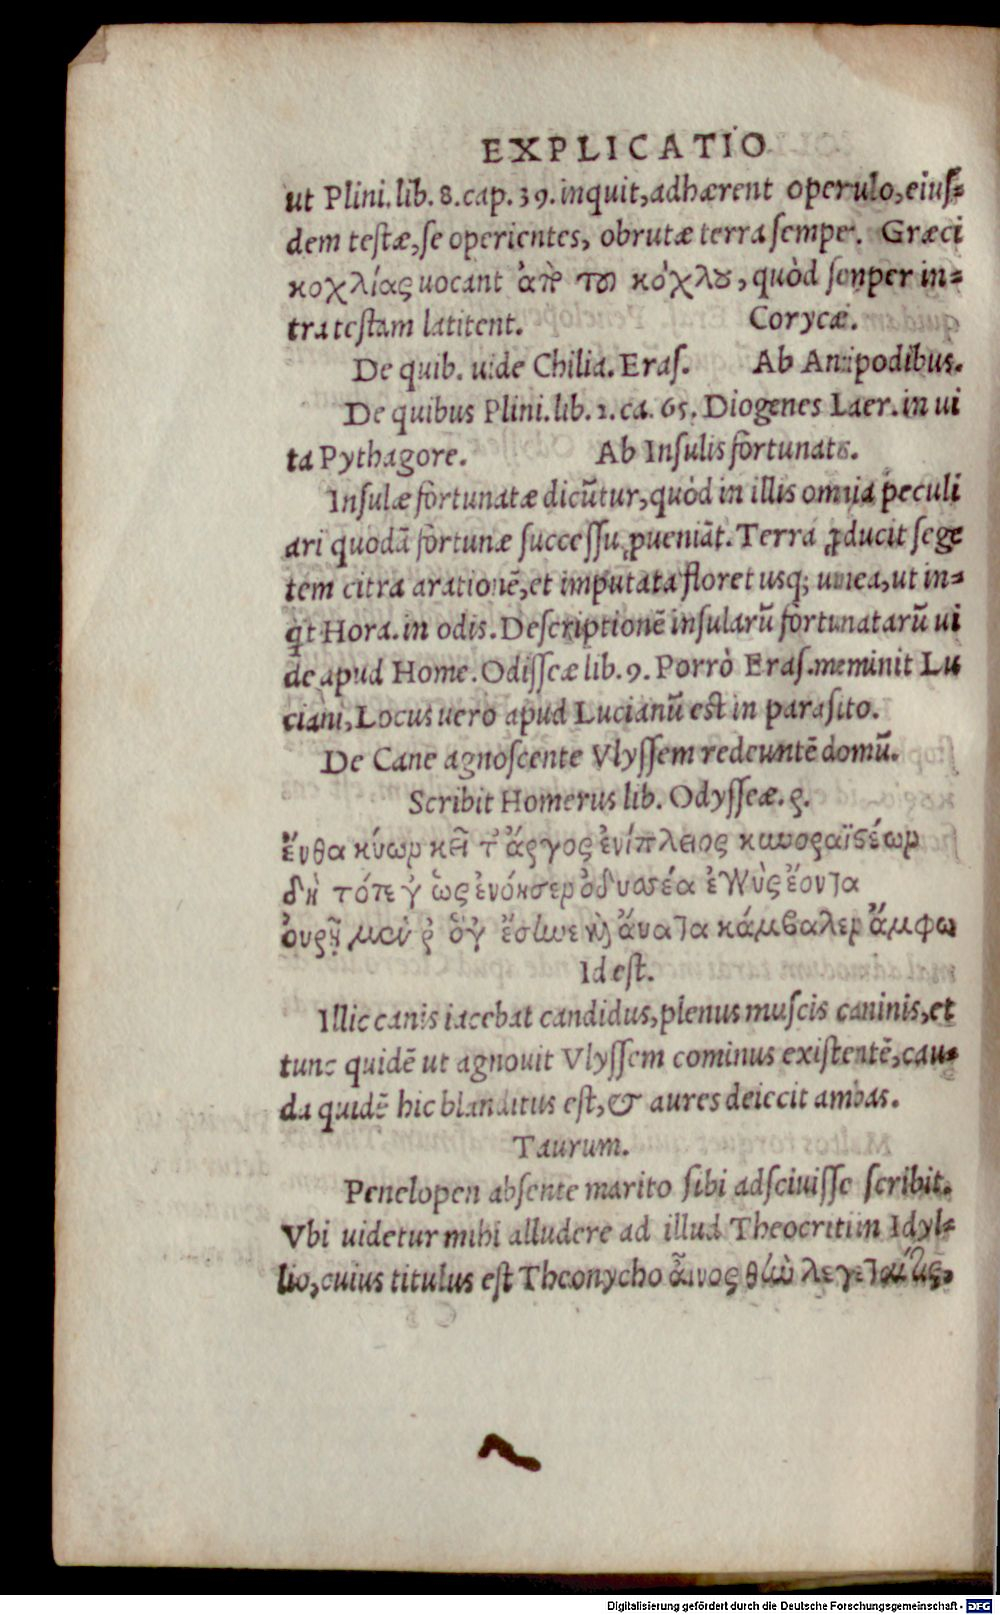 EXPLICATIO
ut Plini. lib. 8. cap. 39. inquit, adhærent operulo, eiuſ=
dem teſtæ, ſe operientes, obrutæ terra ſemper. Græci
κοχλίας uocant ἀπὸ τοῦ κόχλου, quòd ſenper in=
tra teſtam latitent. Corycæi.
De quib. uide Chilia. Eraſ. Ab Antipodibus.
De quibus Plini. lib. 2. ca. 65. Diogenes Laer. in ui
ta Pythagore. Ab Inſulis fortunatis.
Inſulæ fortunatæ dicūtur, quòd in illis omnia peculi
ari quodā fortunæ ſucceſſu ꝓueniāt. Terra ꝓducit ſege
tem citra arationē, et imputata floret uſq; uinea, ut in=
qt Hora. in odis. Deſcriptionē inſularū fortunatarū ui
de apud Home. Odiſſeæ lib. 9. Porrò Eraſ. meminit Lu
ciani, Locus uero apud Lucianū est in paraſito.
De Cane agnoſcente Vlyſſem redeuntē domū.
Scribit Homerus lib. Odyſſeæ. ρ.
ἔνθα κύων κεῖτ' ἄργος ἐνίπλειος κυνοραϊστέων
δὴ τότε γ' ὡς ἐνόησεν ὀδυσσέα ἐγγὺς ἐόντα
οὐρῇ μέν ῥ' ὅγ' ἔσηνε καὶ οὔατα κάμβαλεν ἄμφω
Id eſt.
Illic canis iacebat candidus, plenus muſcis caninis, et
tunc quidē ut agnouit Vlyſſem cominus exiſtentē, cau=
da quidē hic blanditus eſt, & aures deiecit ambas.
Taurum.
Penelopen abſente marito ſibi adſciuiſſe ſcribit.
Vbi uidetur mihi alludere ad illud Theocritim Idyl=
lio, cuius titulus eſt Theonycho αἶνος θὴν λέγεται τις.
Digitalisierung gefördert durch die Deutsche Forschungsgemeinschaft - DFG